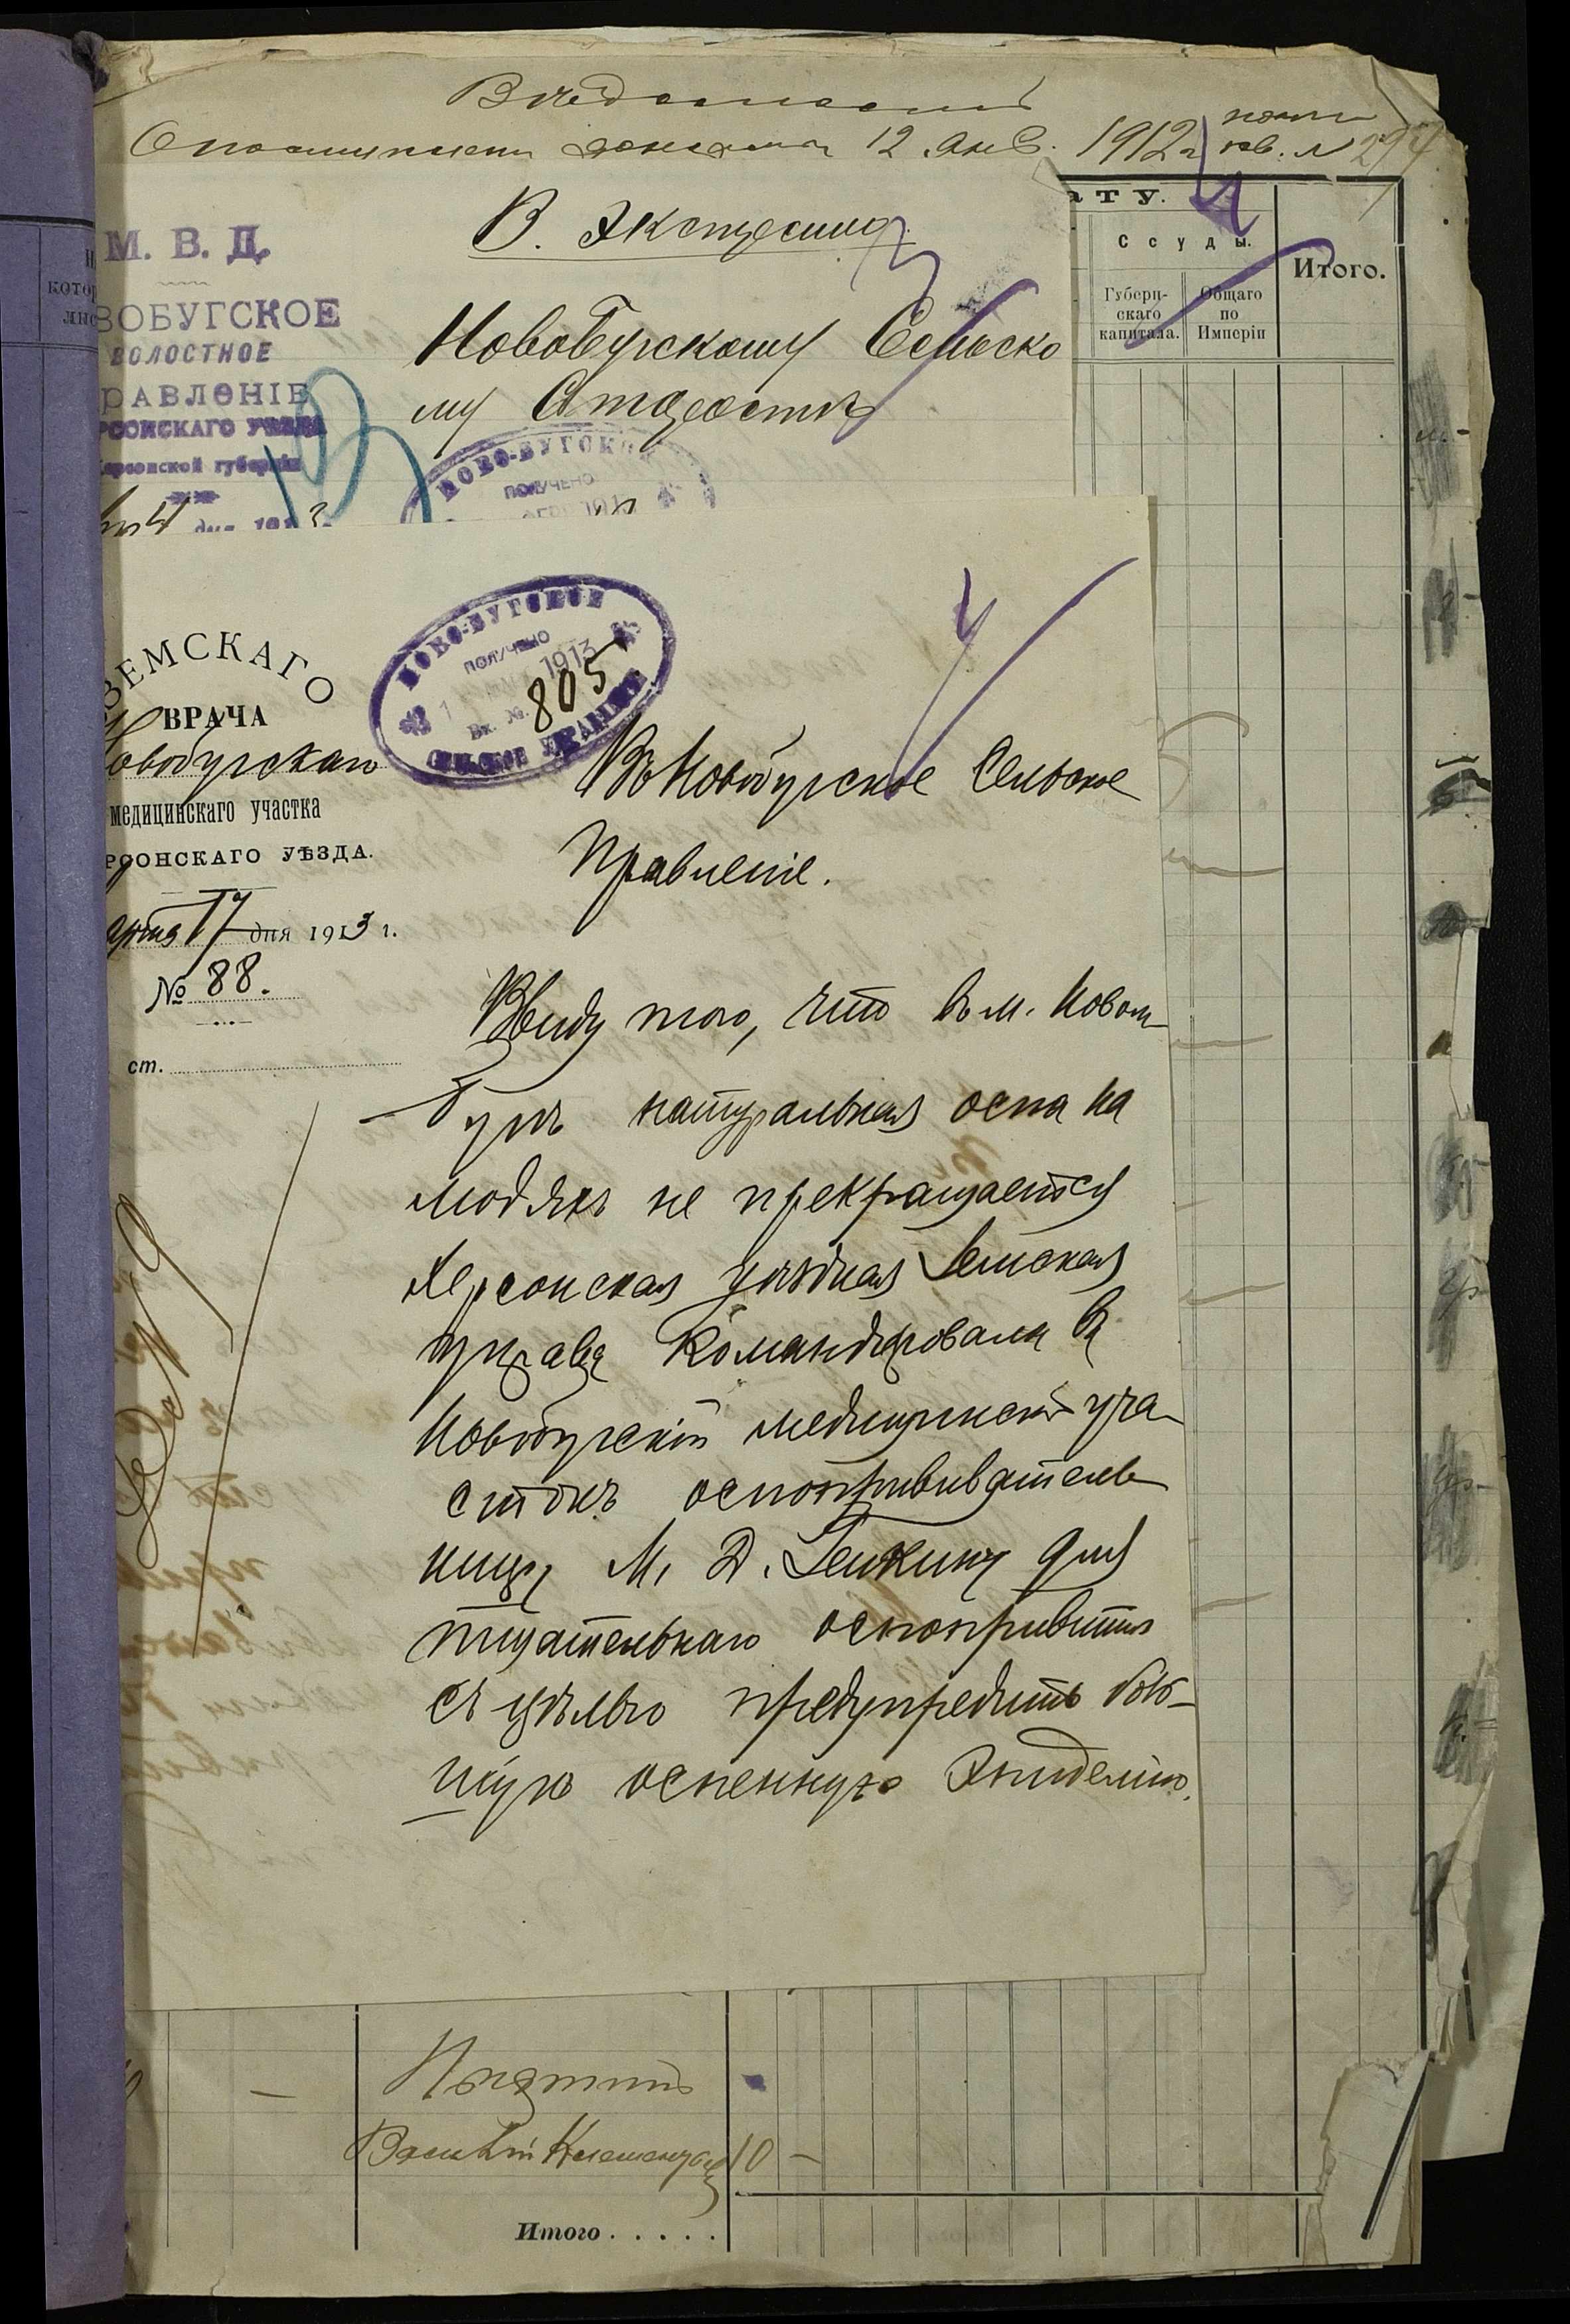 Вѣдомость
12 Янв. 1912 г. кв. №
В. Экстренно.
М. В. Д.
ВОБУГСКОЕ
ВОЛОСТНОЕ
РАВЛЕНІЕ
РСОНСКАГО УѢЗДА
Херсонской губерніи
дня 191
Новобугскому Сельско
му Старостѣ
НОВО-БУГСКО
ПОЛУЧЕНО
ату.
Ссуды.
Итого.
Губерн-
скаго
капитала.
Общаго
по
Имперіи
ЗЕМСКАГО
ВРАЧА
Новобугскаго
медицинскаго участка
РСОНСКАГО УѢЗДА.
арта 17 дня 1913 г.
№ 88.
ст.
НОВО-БУГСКОЕ
ПОЛУЧЕНО
1913
Вх. №. 805
СЕЛЬСКОЕ УПРАВЛЕНІЕ
Въ Новобугское Сельское
Правленіе.
Ввиду того, что въ м. Новом-
Бугѣ натуральная оспа на
людяхъ не прекращается
Херсонская уѣздная Земская
управа командировала въ
Новобугскій медицинскій уча-
стокъ оспопрививатель-
ницу М. Д. Генкину для
тщательнаго оспопрививтія
съ цѣлью предупредить боль-
шую оспенную эпидемію.
Василій
10 –
Итого . . . . .